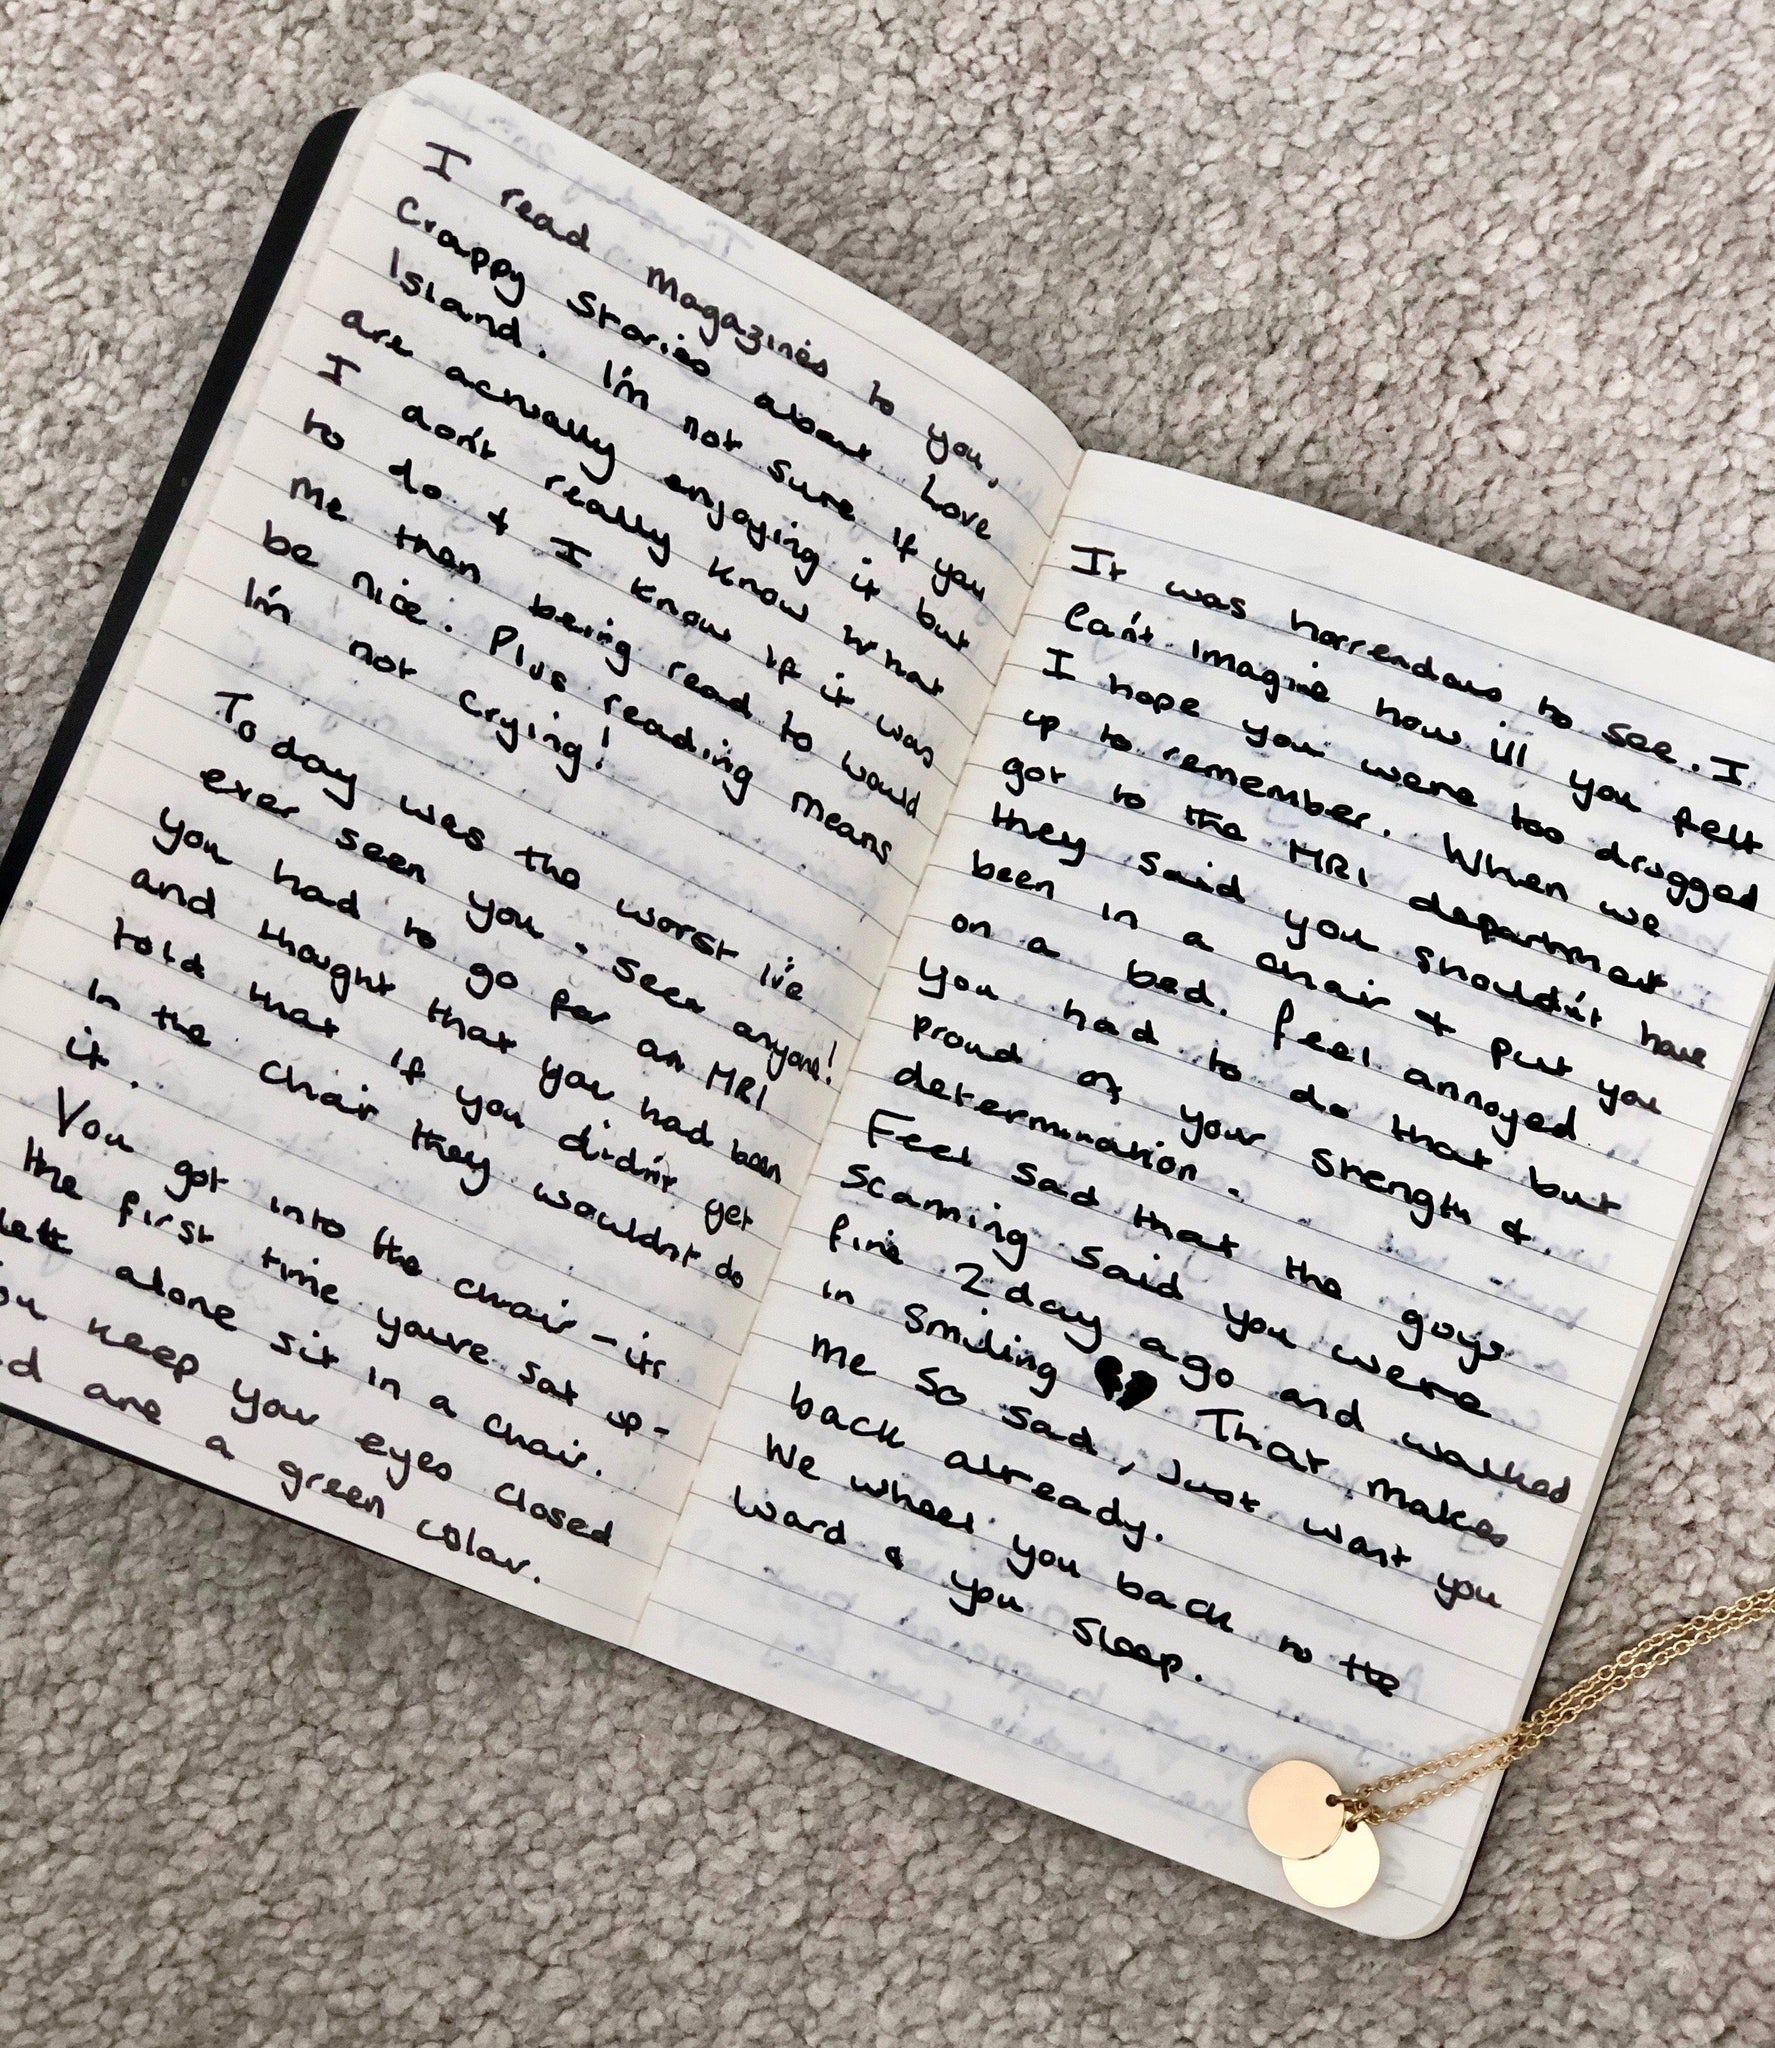 I read magazines to you,
Crappy stories about Love
Island. I'm not sure if you
are actually enjoying it but
I don't really know what
to do & I know if it was
me then being read to would
be nice. Plus reading means
I'm not crying!
Today was the worst I've
ever seen you. Seen anyone!
You had to go for an MRI
and thought that you had been
told that if you didn't get
in the chair they wouldnt do
it.
You got into the chair - its
the first time you've sat up -
lett alone sit in a chair.
you keep your eyes closed
are a green colour.
It was horrendous to see. I
can't imagine how ill you felt
I hope you were too drugged
up to remember. When we
got to the MRI department
they said you shouldn't have
been in a chair & put you
on a bed. feel annoyed
you had to do that but
proud of your strength &
determination.
Feel sad that the guys
scanning said you were
fine 2 day ago and walked
in smiling 💔 That makes
me so sad, Just want you
back already.
We wheel you back to the
ward & you sleep.